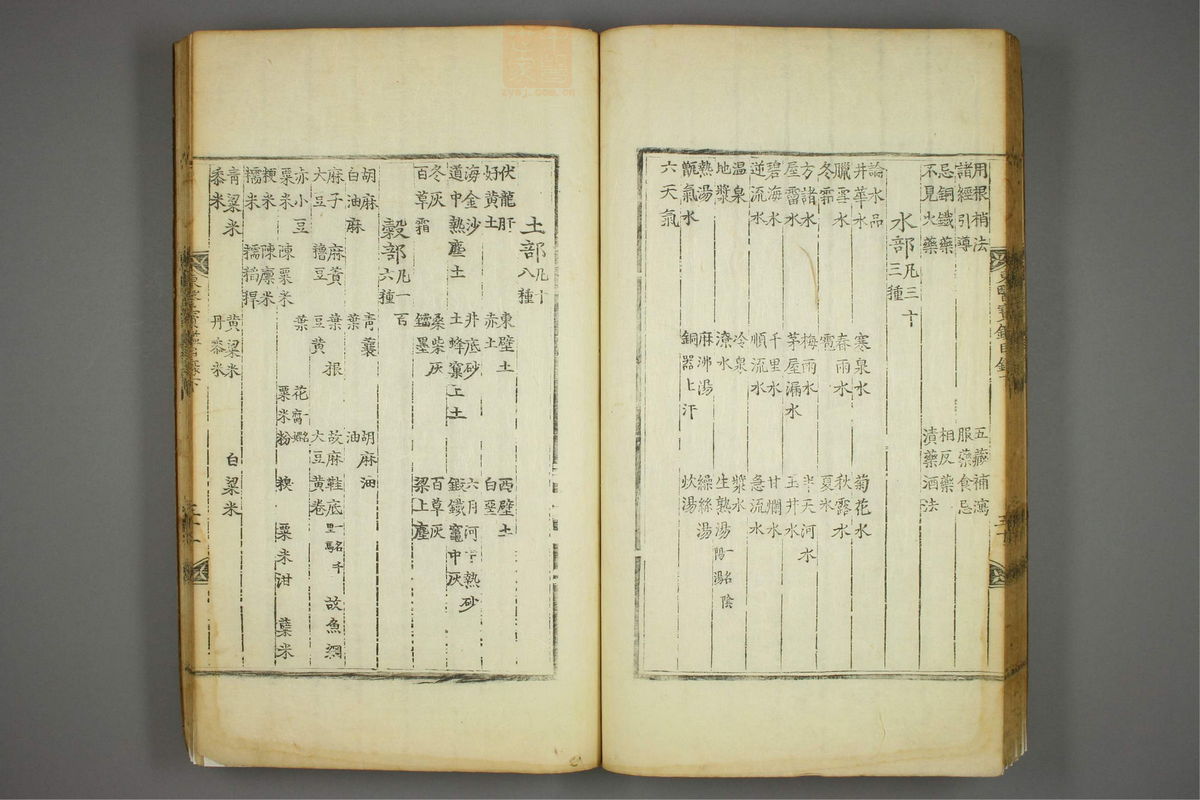 用根梢法 五藏補瀉
諸經引導 服藥食忌
忌銅鐵藥 相反藥
不見火藥 漬藥酒法
水部 凡三十三種
論水品
井華水 寒泉水 菊花水
臘雪水 春雨水 秋露水
冬霜 雹 夏氷
方諸水 梅雨水 半天河水
屋霤水 茅屋漏水 玉井水
碧海水 千里水 甘爛水
逆流水 順流水 急流水
溫泉 冷泉 漿水
地漿 潦水 生熟湯 一名陰陽湯
熱湯 麻沸湯 繰絲湯
甑氣水 銅器上汗 炊湯
六天氣
土部 凡十八種
伏龍肝 東壁土 西壁土
好黃土 赤土 白堊
海金沙 井底砂 六月河中熱砂
道中熱塵土 土蜂窠上土 鍛鐵竈中灰
冬灰 桑柴灰 百草灰
百草霜 鐺墨 梁上塵
穀部 凡一百六種
胡麻 青蘘 胡麻油
白油麻 葉 油
麻子 麻蕡 葉 根 故麻鞋底 一名千里馬 故魚網
大豆 穭豆 豆黃 大豆黃卷
赤小豆 葉 花 一名腐婢
粟米 陳粟米 粟米粉 糗 粟米泔 糵米
粳米 陳廩米
糯米 糯稻稈
青粱米 黃粱米 白粱米
黍米 丹黍米